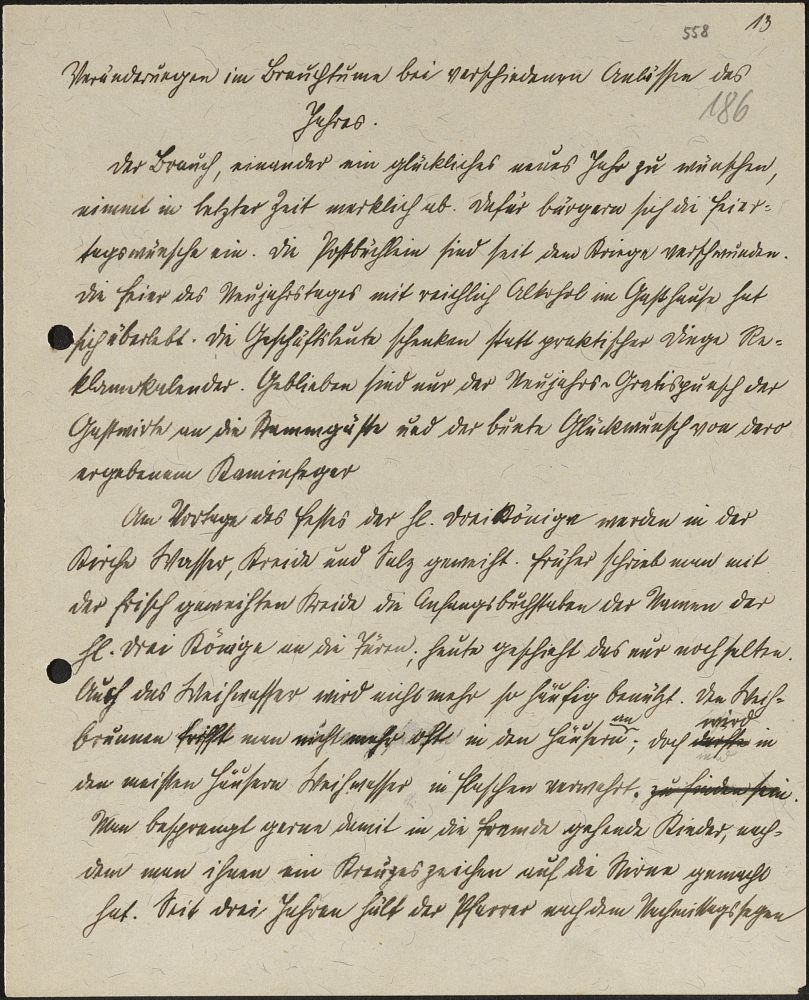 558 13
Veränderungen im Brauchtume bei verschiedenen Anlässen des
186
Jahres.
Der Brauch, einander ein glückliches neues Jahr zu wünschen,
nimmt in letzter Zeit merklich ab. Dafür bürgern sich die Feier-
tagswünsche ein. Die Postbüchlein sind seit dem Kriege verschwunden.
Die Feier des Neujahrstages mit reichlich Alkohol im Gasthause hat
sich überlebt. Die Geschäftsleute schenken statt praktischer Dinge Re-
klamekalender. Geblieben sind nur der Neujahrs-Gratispunsch der
Gastwirte an die Stammgäste und der bunte Glückwunsch von dero
ergebenem Kaminfeger
Am Vortage des Festes der hl. Drei Könige werden in der
Kirche Wasser, Kreide und Salz geweiht. Früher schrieb man mit
der frisch geweihten Kreide die Anfangsbuchstaben der Namen der
hl. Drei Könige an die Türen; heute geschieht das nur noch selten.
Auch das Weihwasser wird nicht mehr so häufig benützt. Den Weih-
brunnen trifft man nicht mehr oft in den Häusern an; doch dürfte wird in
den meisten Häusern Weihwasser in Flaschen verwahrt. zu finden sein.
Man besprengt gerne damit in die Fremde gehende Kinder, nach-
dem man ihnen ein Kreuzeszeichen auf die Stirne gemacht
hat. Seit drei Jahren hält der Pfarrer nach dem Nachmittagssegen